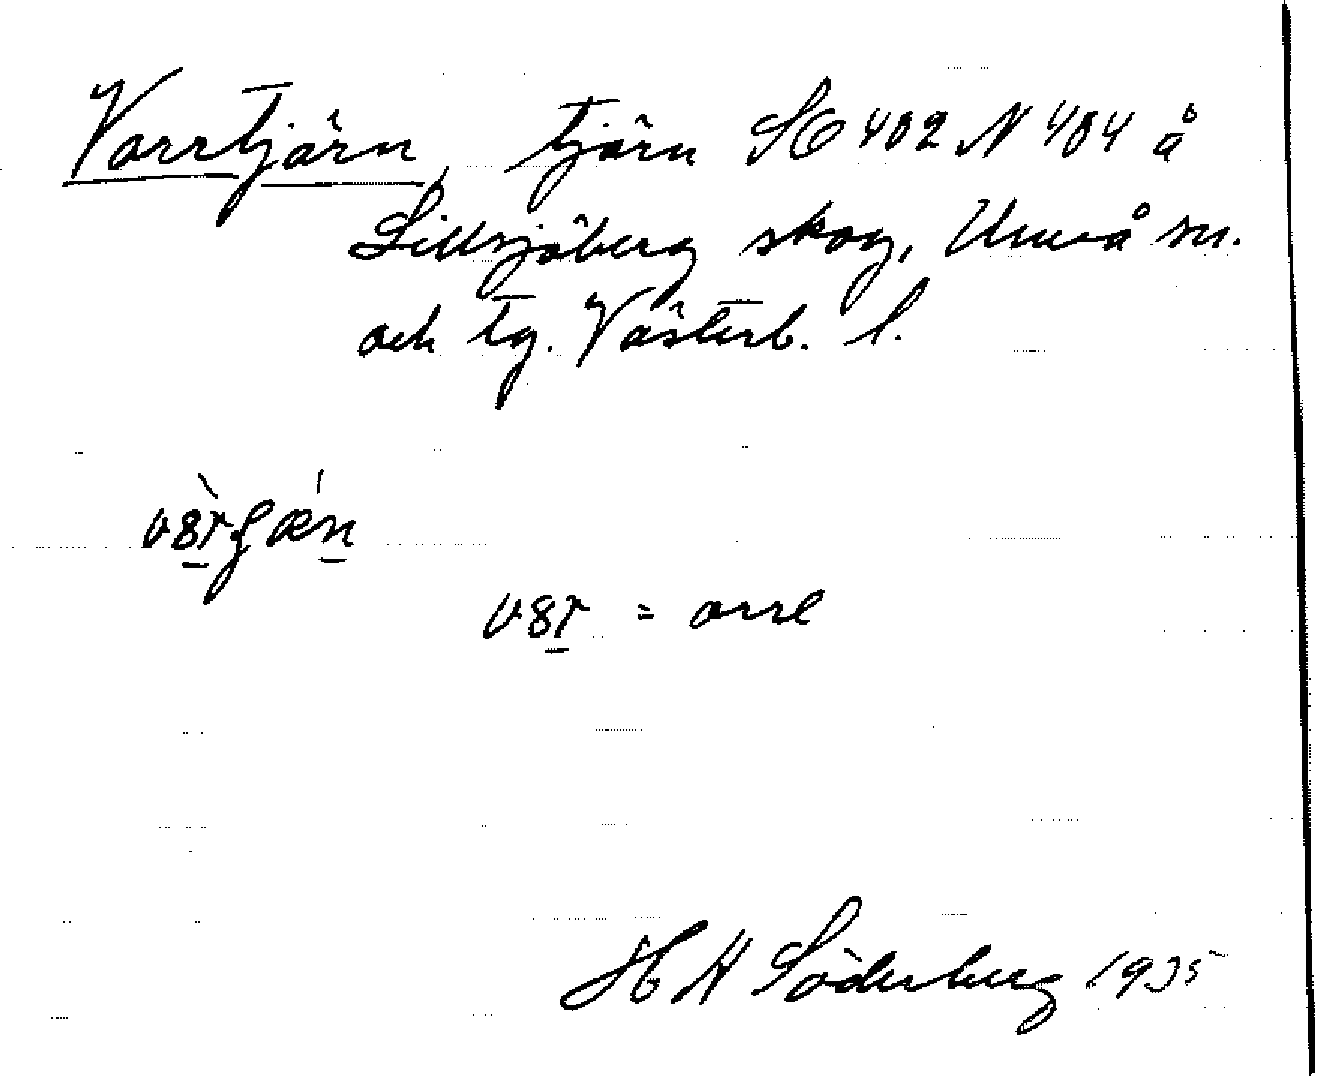 Vorrtjärn, tjärn SO 402 N 404 å
Lillsjöberg skog, Umeå sn.
och tg. Västerb. l.
= orre
H H Söderberg 1935